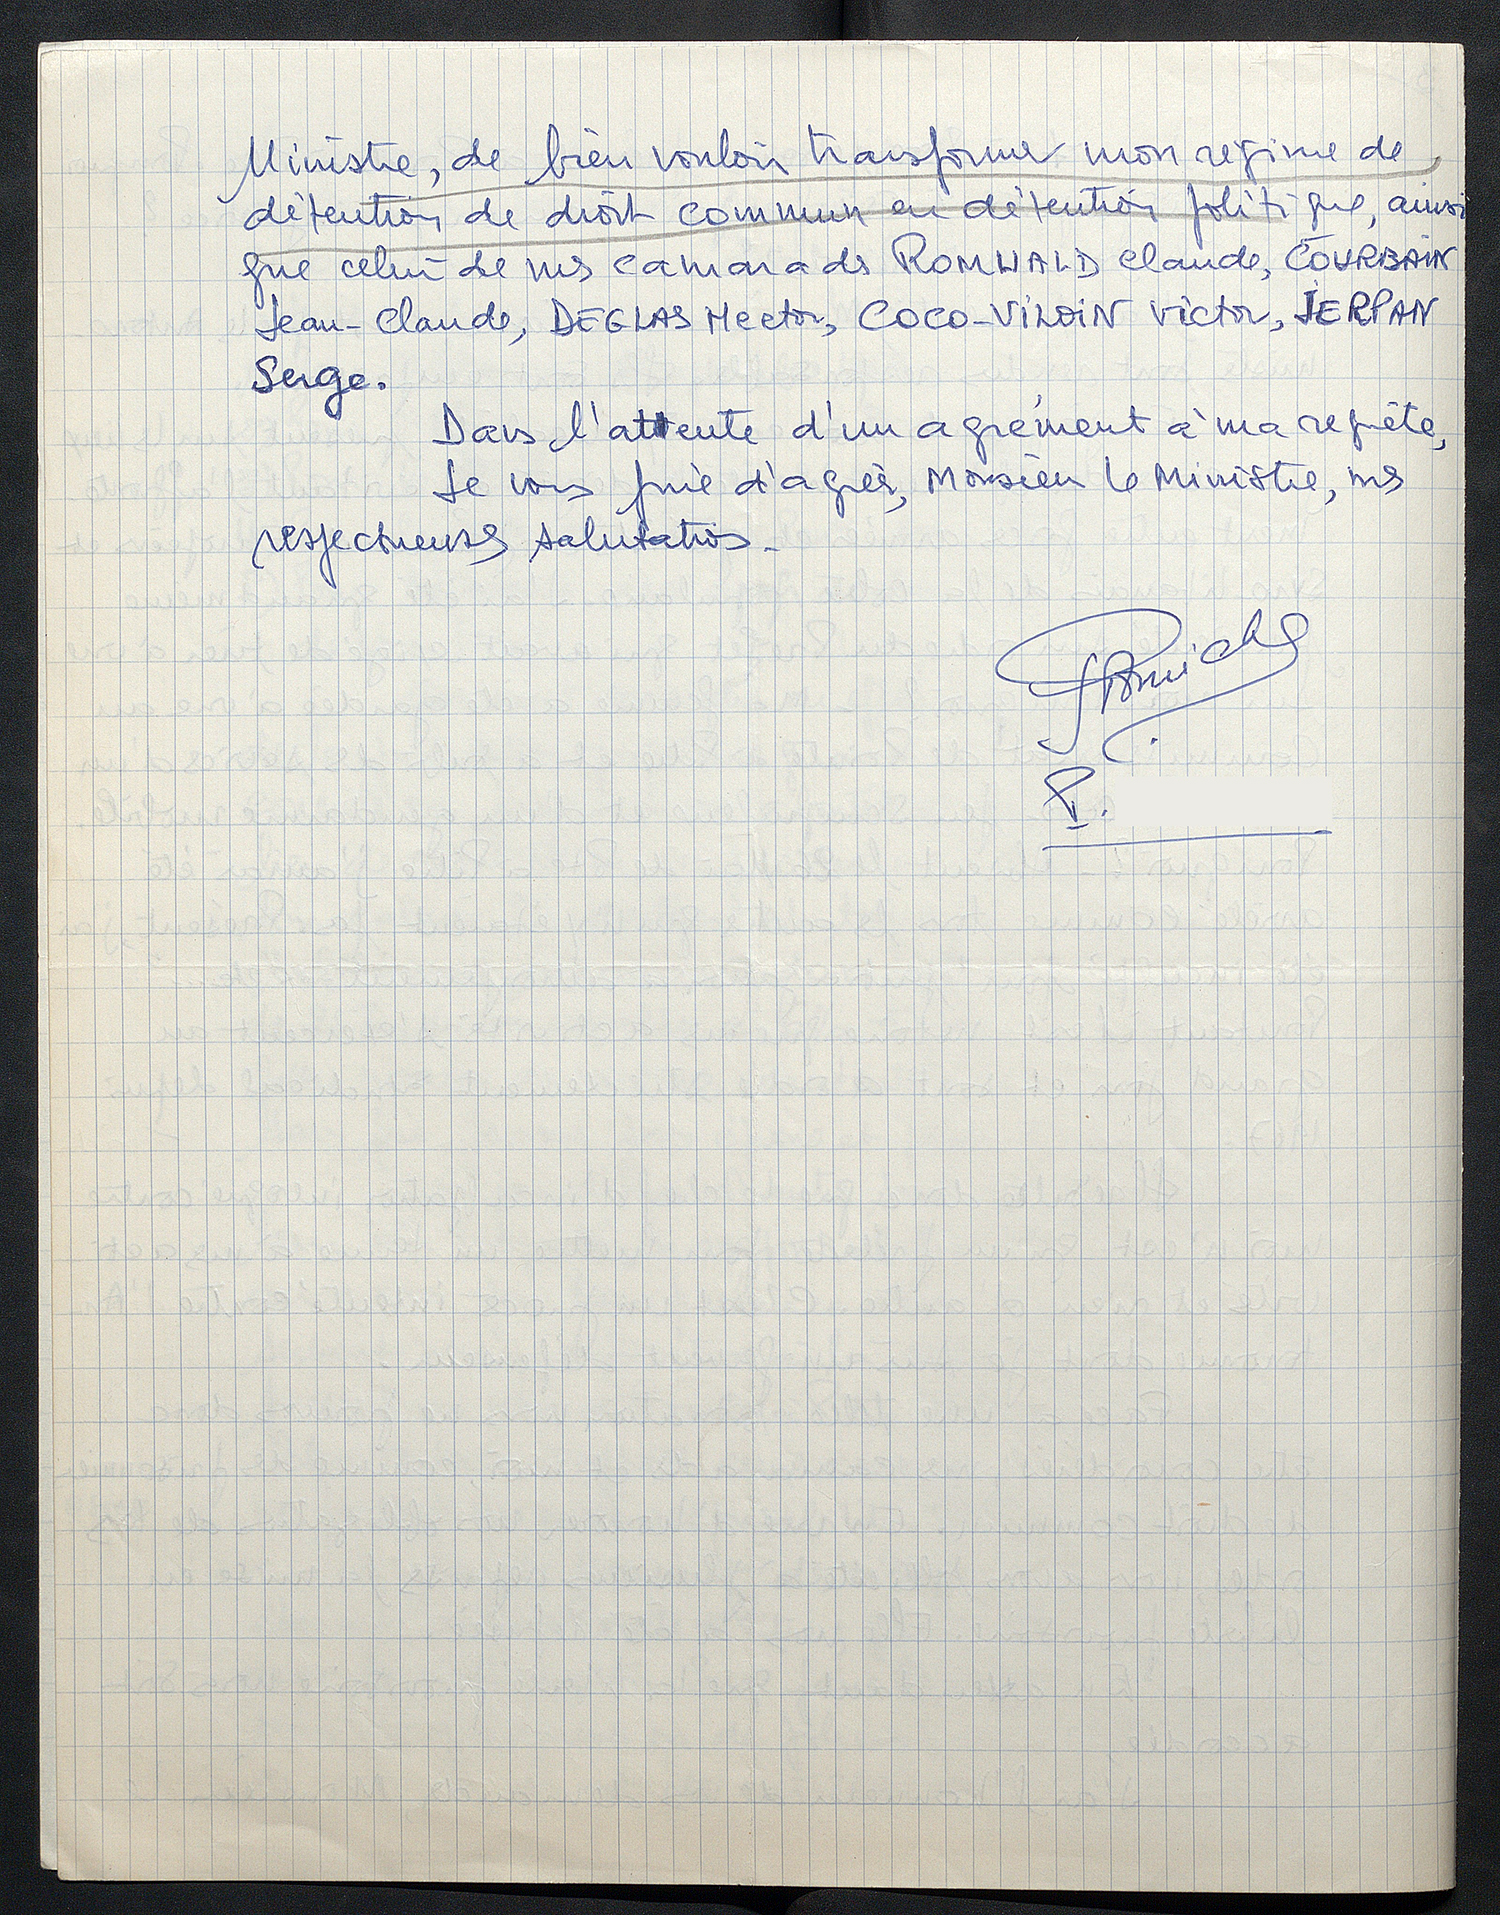 Ministre, de bien vouloir transformer mon régime de
détention de droit commun en détention politique, ainsi
que celui de mes camarades ROMUALD Claude, COURBAIN
Jean-Claude, DEGLAS Hector, COCO-VILOIN Victor, JERPAN
Serge.
Dans l'attente d'un agrément à ma requête,
Je vous prie d'agréer, Monsieur le Ministre, mes
respectueuses salutations.